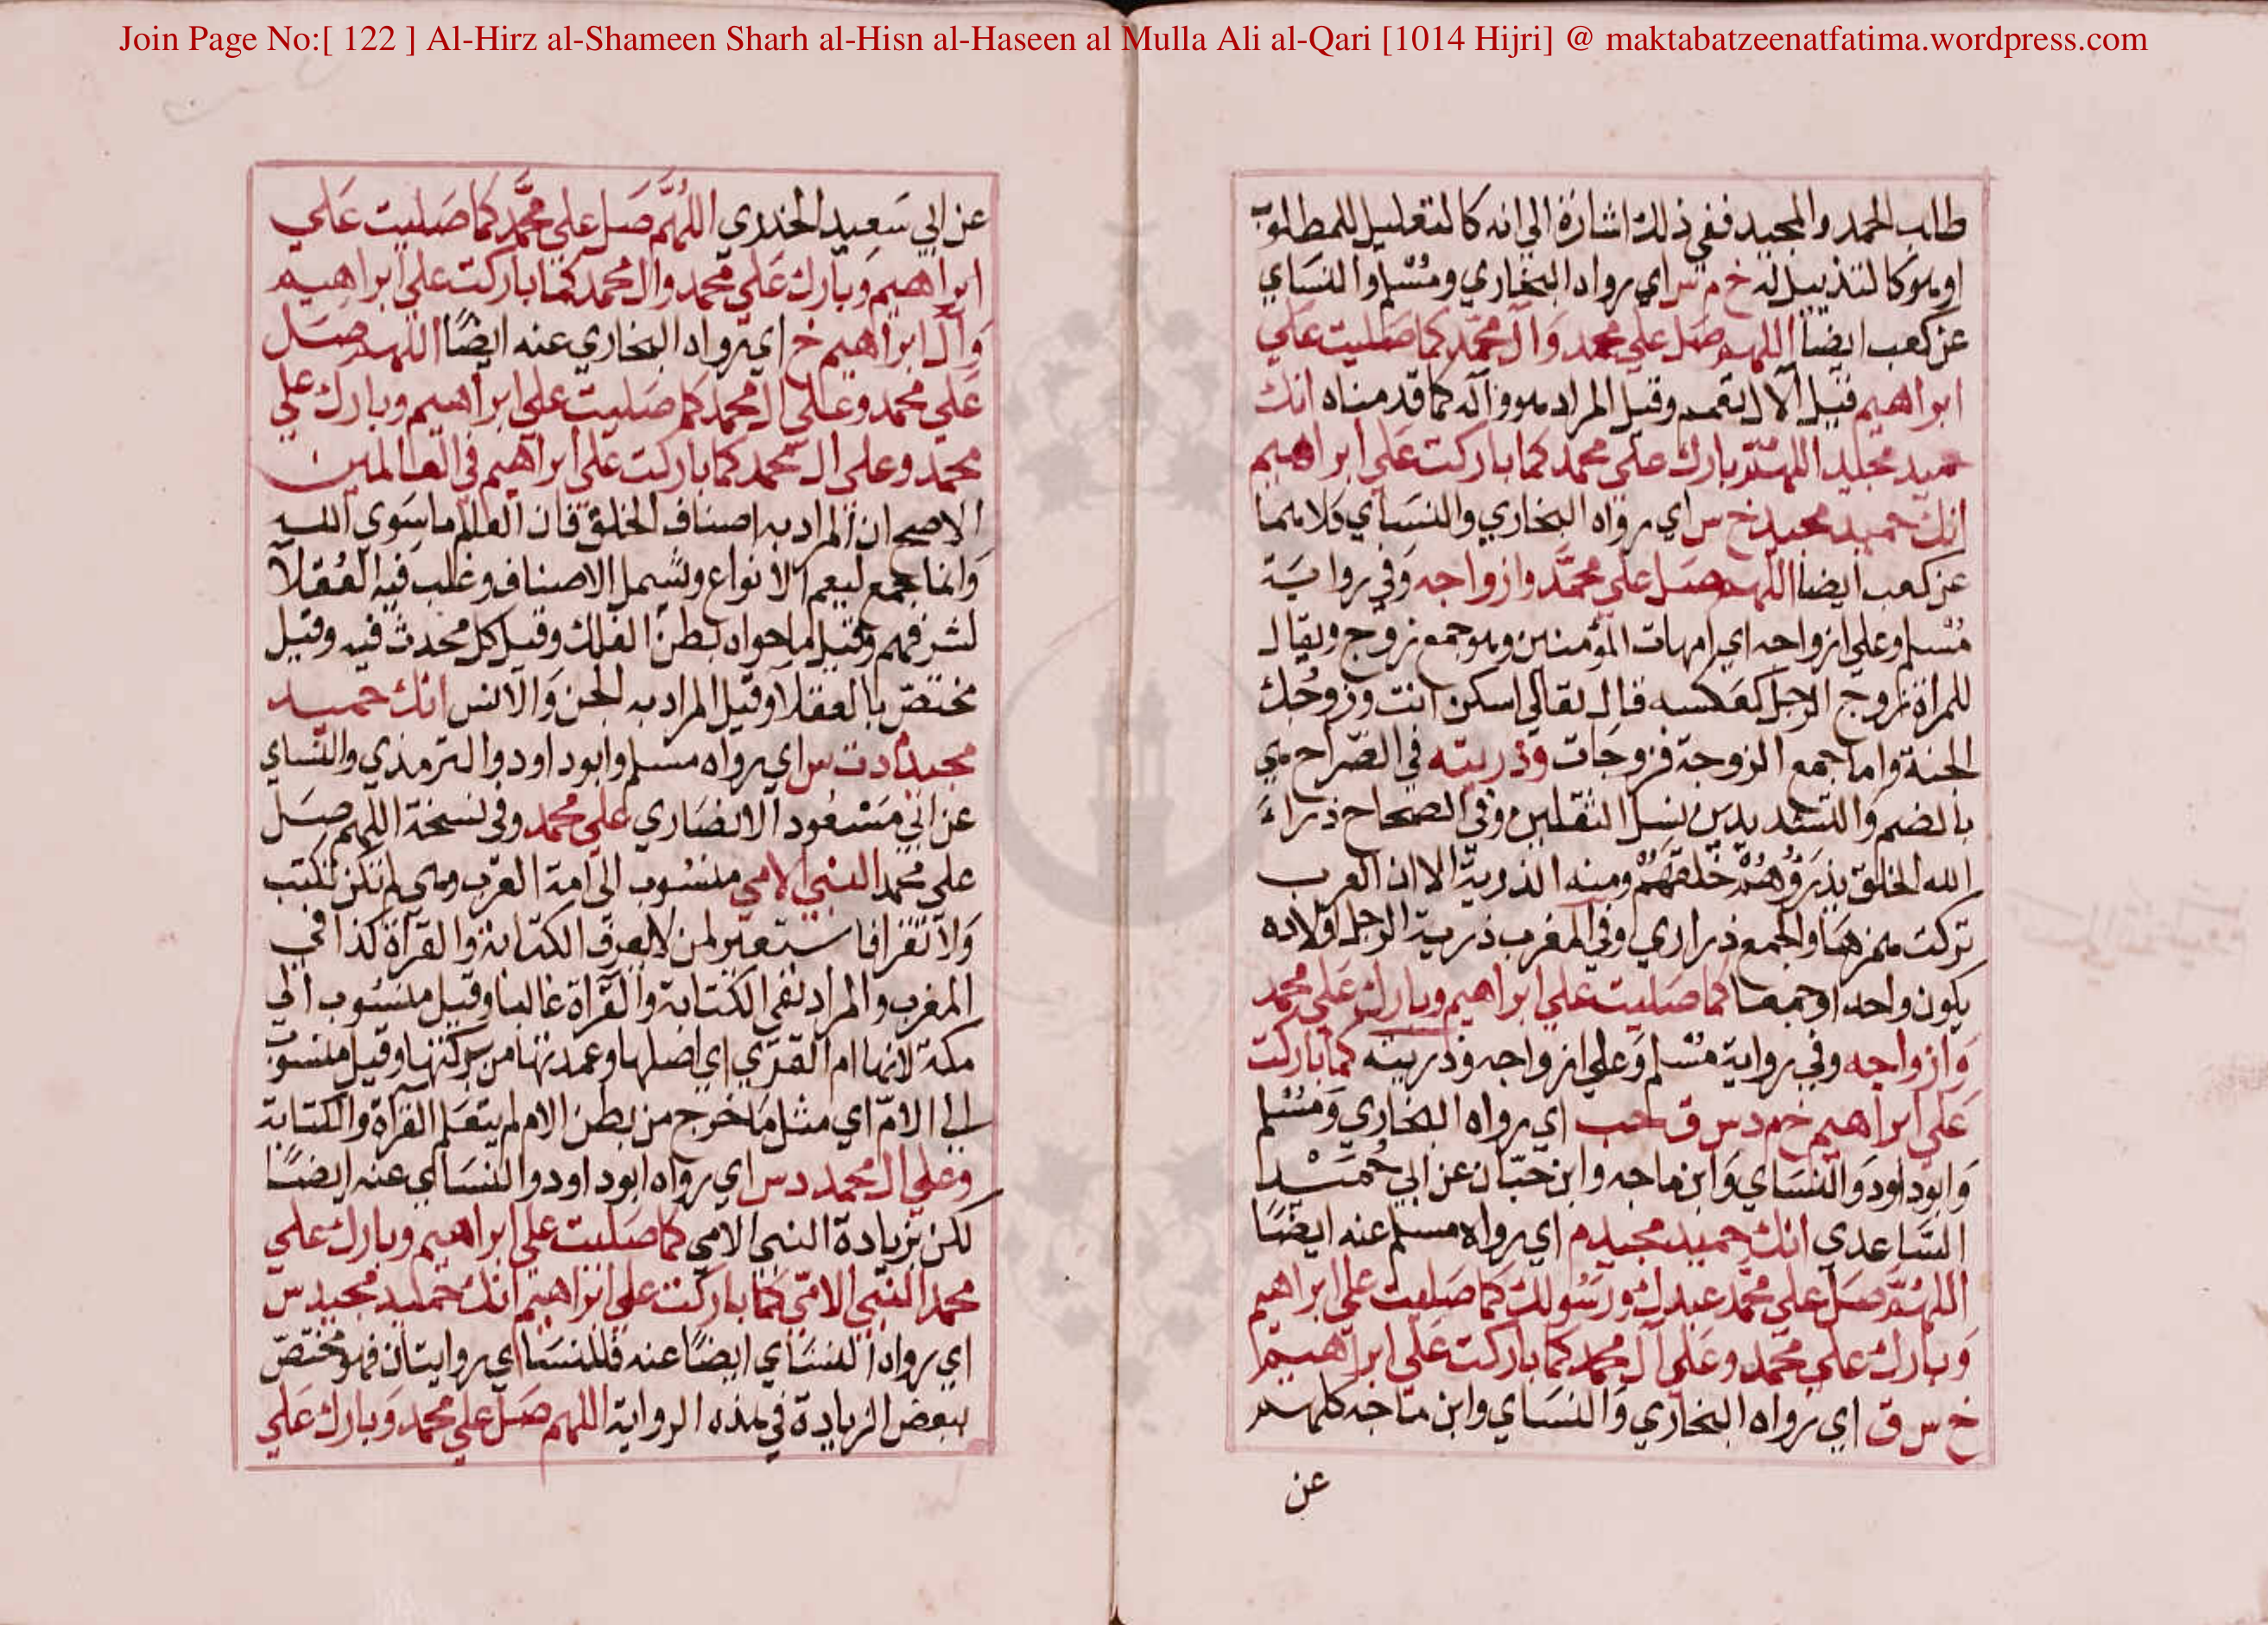 Join Page No:[ 122 ] Al-Hirz al-Shameen Sharh al-Hisn al-Haseen al Mulla Ali al-Qari [1014 Hijri] @ maktabatzeenatfatima.wordpress.com
طالب الحمد والمجيد ففي ذلك اشارة الي انه كالتعليل للمطلوب
او هو كالتذييل له خ م س اي رواه البخاري ومسلم والنساي
عن كعب ايضا اللهم صل علي محمد وال محمد كما صليت علي
ابراهيم قيل الال مقحم وقيل المراد هو وآله كما قدمناه انك
حميد مجيد اللهم بارك علي محمد كما باركت علي ابراهيم
انك حميد مجيد خ س اي رواه البخاري والنساي كلاهما
عن كعب ايضا اللهم صل علي محمد وازواجه وفي رواية
مسلم وعلي ازواجه اي امهات المؤمنين وهو جمع زوج ويقال
للمراة زوج الرجل كعكسه قال تعالي اسكن انت وزوجك
الجنة واما جمع الزوجة فزوجات وذريته في الصراح هي
بالضم والتشديد من نسل الثقلين وفي الصحاح ذراء
الله الخلق يذرؤهم خلقهم ومنه الذرية الا ان العرب
تركت همزها والجمع ذراري وفي المغرب ذرية الرجل اولاده
يكون واحدا وجمعا كما صليت علي ابراهيم وبارك علي محمد
وازواجه وفي رواية مسلم وعلي ازواجه وذريته كما باركت
علي ابراهيم خ م د س ق حب اي رواه البخاري ومسلم
وابوداود والنساي وابن ماجه وابن حبان عن ابي حميد
الساعدي انك حميد مجيد م اي رواه مسلم عنه ايضا
اللهم صل علي محمد عبدك ورسولك كما صليت علي ابراهيم
وبارك علي محمد وعلي آل محمد كما باركت علي ابراهيم
خ س ق اي رواه البخاري والنساي وابن ماجه كلهم
عن
عن ابي سعيد الخدري اللهم صل علي محمد كما صليت علي
ابراهيم وبارك علي محمد وال محمد كما باركت علي ابراهيم
وآل ابراهيم خ اي رواه البخاري عنه ايضا اللهم صل
علي محمد وعلي ال محمد كما صليت علي ابراهيم وبارك علي
محمد وعلي ال محمد كما باركت علي ابراهيم في العالمين
الاصح ان المراد به اصناف الخلق فان العالم ما سوي الله
وانما جمع ليعم الانواع ويشمل الاصناف وغلب فيه العقلا
لشرفهم وقيل ما حواه بطن الفلك وقيل كل محدث فيه وقيل
مختص بالعقلا وقيل المراد به الجن والانس انك حميد
مجيد م د ت س اي رواه مسلم وابوداود والترمذي والنساي
عن ابي مسعود الانصاري علي محمد وفي نسخة اللهم صل
علي محمد النبي الامي منسوب الي امة العرب وهي لم تكن تكتب
ولا تقرا فاستعير لمن لا يعرف الكتابة والقرآة كذا في
المغرب والمراد نفي الكتابة والقرآة غالبا وقيل منسوب الي
مكة لانها ام القري اي اصلها وعمدتها من بركتها وقيل منسوب
الي الام اي مثل ما خرج من بطن الام لم يتعلم القرآة والكتابة
وعلي ال محمد د س اي رواه ابوداود والنساي عنه ايضا
لكن بزيادة النبي الامي كما صليت علي ابراهيم وبارك علي
محمد النبي الامي كما باركت علي ابراهيم انك حميد مجيد س
اي رواه النساي ايضا عنه فللنساي روايتان فهو مختص
ببعض الزيادة في هذه الرواية اللهم صل علي محمد وبارك علي